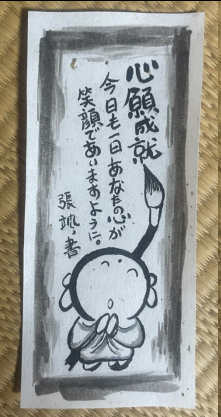 心願成就
今日も一日あなたの心が
笑顔であいますように。
張
書